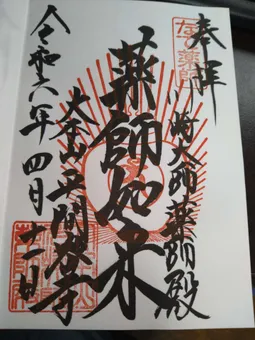 奉拝
川崎大師薬師殿
薬師如来
大本山平間寺
令和六年四月十一日